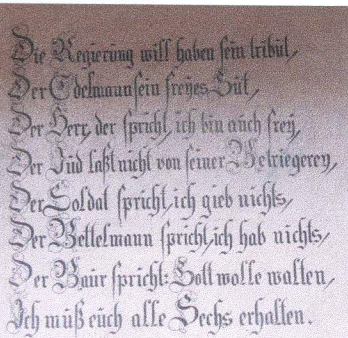 Die Regierung will haben sein tribut,
Der Edelmann sein freyes Gut,
Der Herr, der spricht, ich bin auch frey,
Der Jud laßt nicht von seiner Betriegerey,
Der Soldat spricht, ich gieb nichts,
Der Bettelmann spricht, ich hab nichts,
Der Baur spricht: Gott wolle walten,
Ich muß euch alle Sechs erhalten.